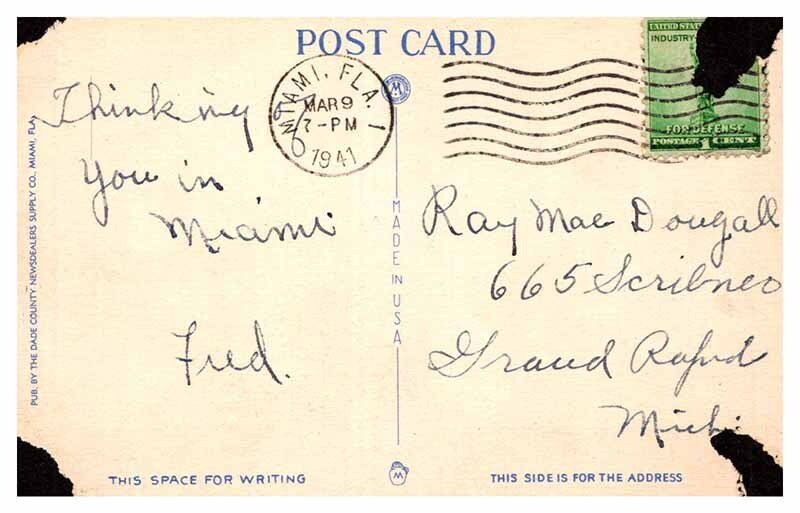 POST CARD
UNITED STAT
INDUSTRY
FOR DEFENSE
POSTAGE 1 CENT
MIAMI, FLA. 1
MAR 9
7-PM
1941
Thinking
you in
Miami
Fred.
PUB. BY THE DADE COUNTY NEWSDEALERS SUPPLY CO., MIAMI, FLA.
MADE IN USA
Ray Mac Dougall
665 Scribner
Grand Rapid
Mich.
THIS SPACE FOR WRITING
M
THIS SIDE IS FOR THE ADDRESS